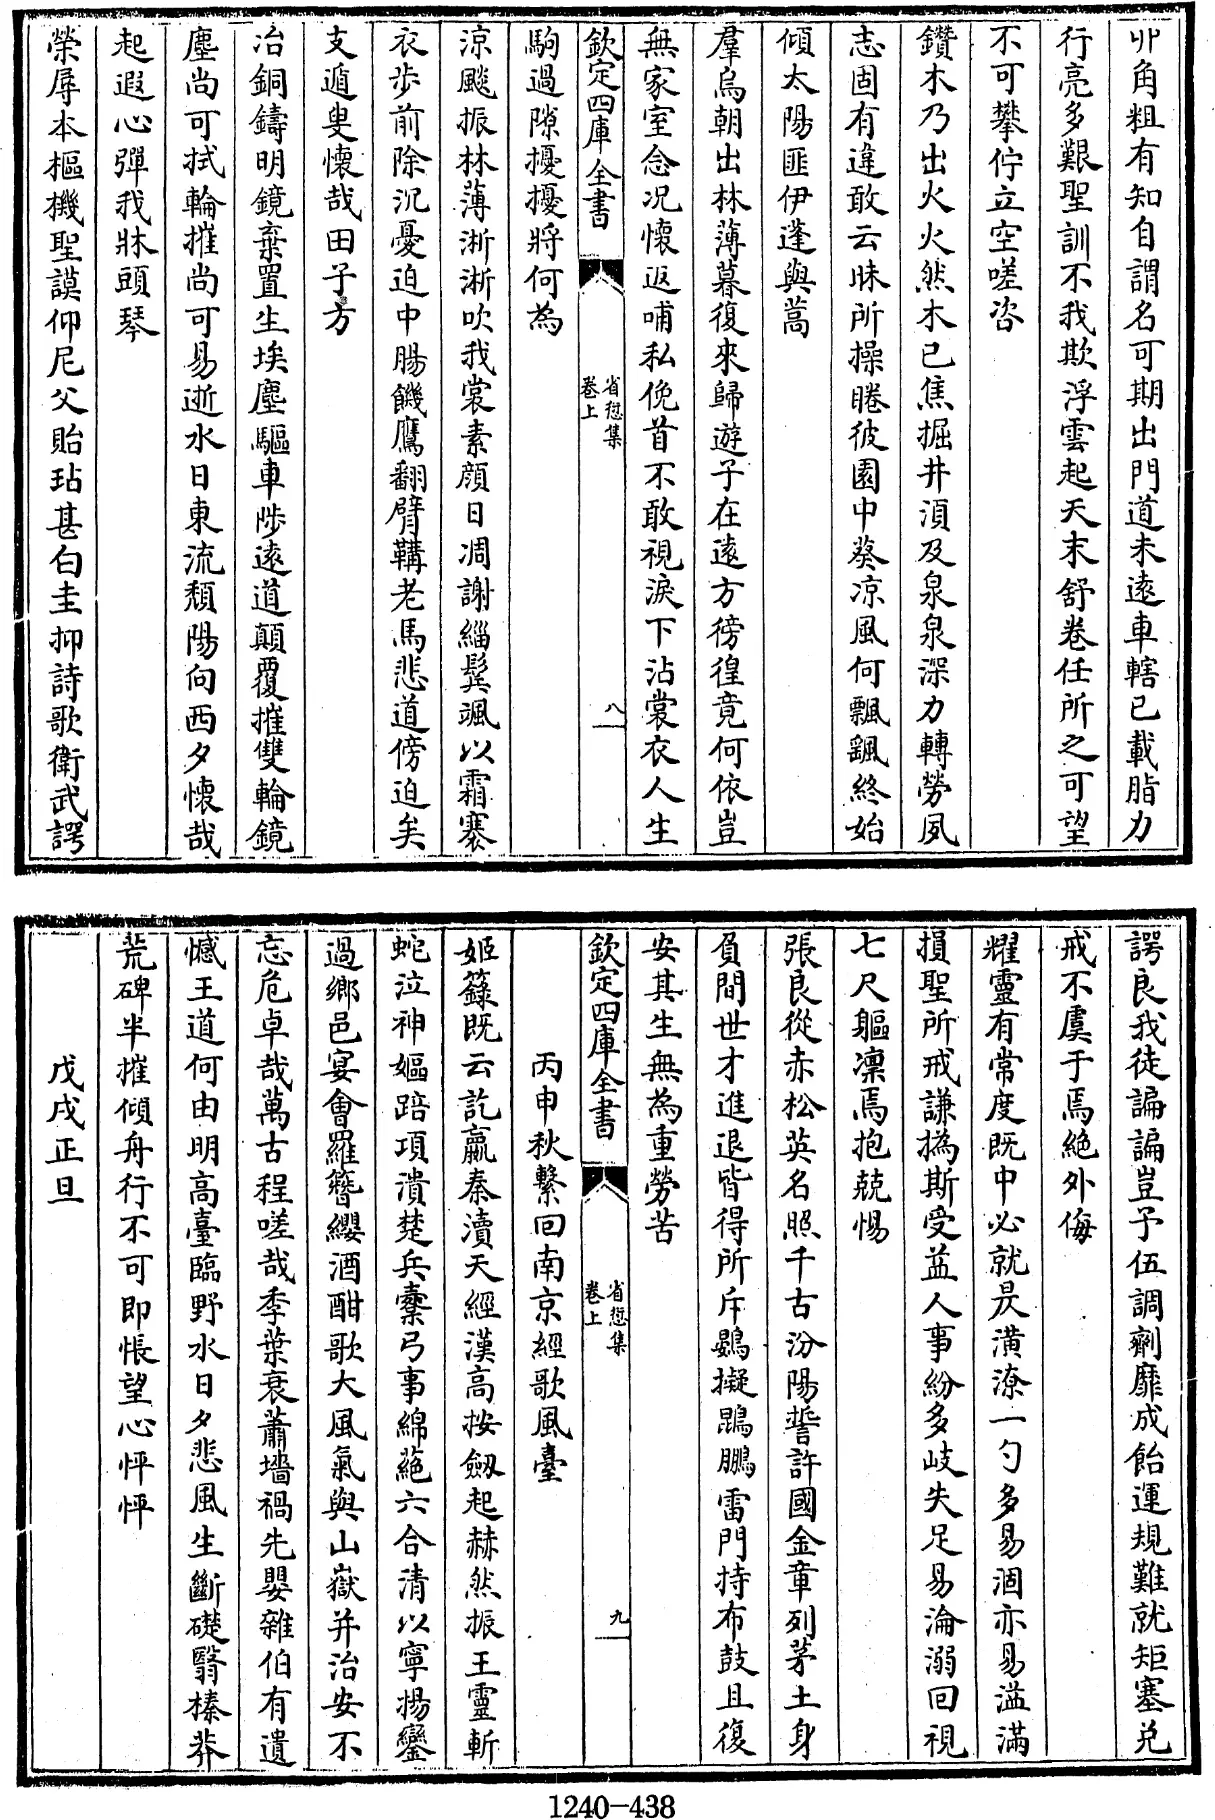 丱角粗有知自謂名可期出門道未遠車轄已載脂力
行亮多艱聖訓不我欺浮雲起天末舒卷任所之可望
不可攀佇立空嗟咨
鑽木乃出火火然木已焦掘井湏及泉泉深力轉勞夙
志固有違敢云昧所操睠彼園中葵凉風何飄颻終始
傾太陽匪伊蓬與蒿
羣烏朝出林薄暮復來歸遊子在遠方徬徨竟何依豈
無家室念况懷返哺私俛首不敢視淚下沾裳衣人生
欽定四庫全書
省愆集
卷上
八
駒過隙擾擾將何為
涼飈振林薄淅淅吹我裳素顔日凋謝緇鬂颯以霜褰
衣步前除沉憂迫中腸饑鷹翻臂鞲老馬悲道傍迫矣
支遁叟懷哉田子方
冶銅鑄明鏡棄置生埃塵驅車陟遠道顛覆摧雙輪鏡
塵尚可拭輪摧尚可易逝水日東流頽陽向西夕懷哉
起遐心彈我牀頭琴
榮辱本樞機聖謨仰尼父貽玷甚白圭抑詩歌衛武諤
諤良我徒諞諞豈予伍調劑靡成飴運規難就矩塞兑
戒不虞于焉絶外侮
耀靈有常度既中必就昃潢潦一勺多易涸亦易溢滿
損聖所戒謙撝斯受益人事紛多岐失足易淪溺回視
七尺軀凛焉抱兢惕
張良從赤松英名照千古汾陽誓許國金章列茅土身
負間世才進退皆得所斥鷃擬鵾鵬雷門持布鼓且復
安其生無為重勞苦
欽定四庫全書
省愆集
卷上
九
丙申秋繫回南京經歌風臺
姬籙既云訖嬴秦瀆天經漢高按劔起赫然振王靈斬
蛇泣神嫗踣項潰楚兵櫜弓事綿蕝六合清以寧揚鑾
過鄉邑宴會羅簪纓酒酣歌大風氣與山嶽并治安不
忘危卓哉萬古程嗟哉季葉衰蕭墻禍先嬰雜伯有遺
憾王道何由明高臺臨野水日夕悲風生斷礎翳榛莽
荒碑半摧傾舟行不可即悵望心怦怦
戊戌正旦
1240-438